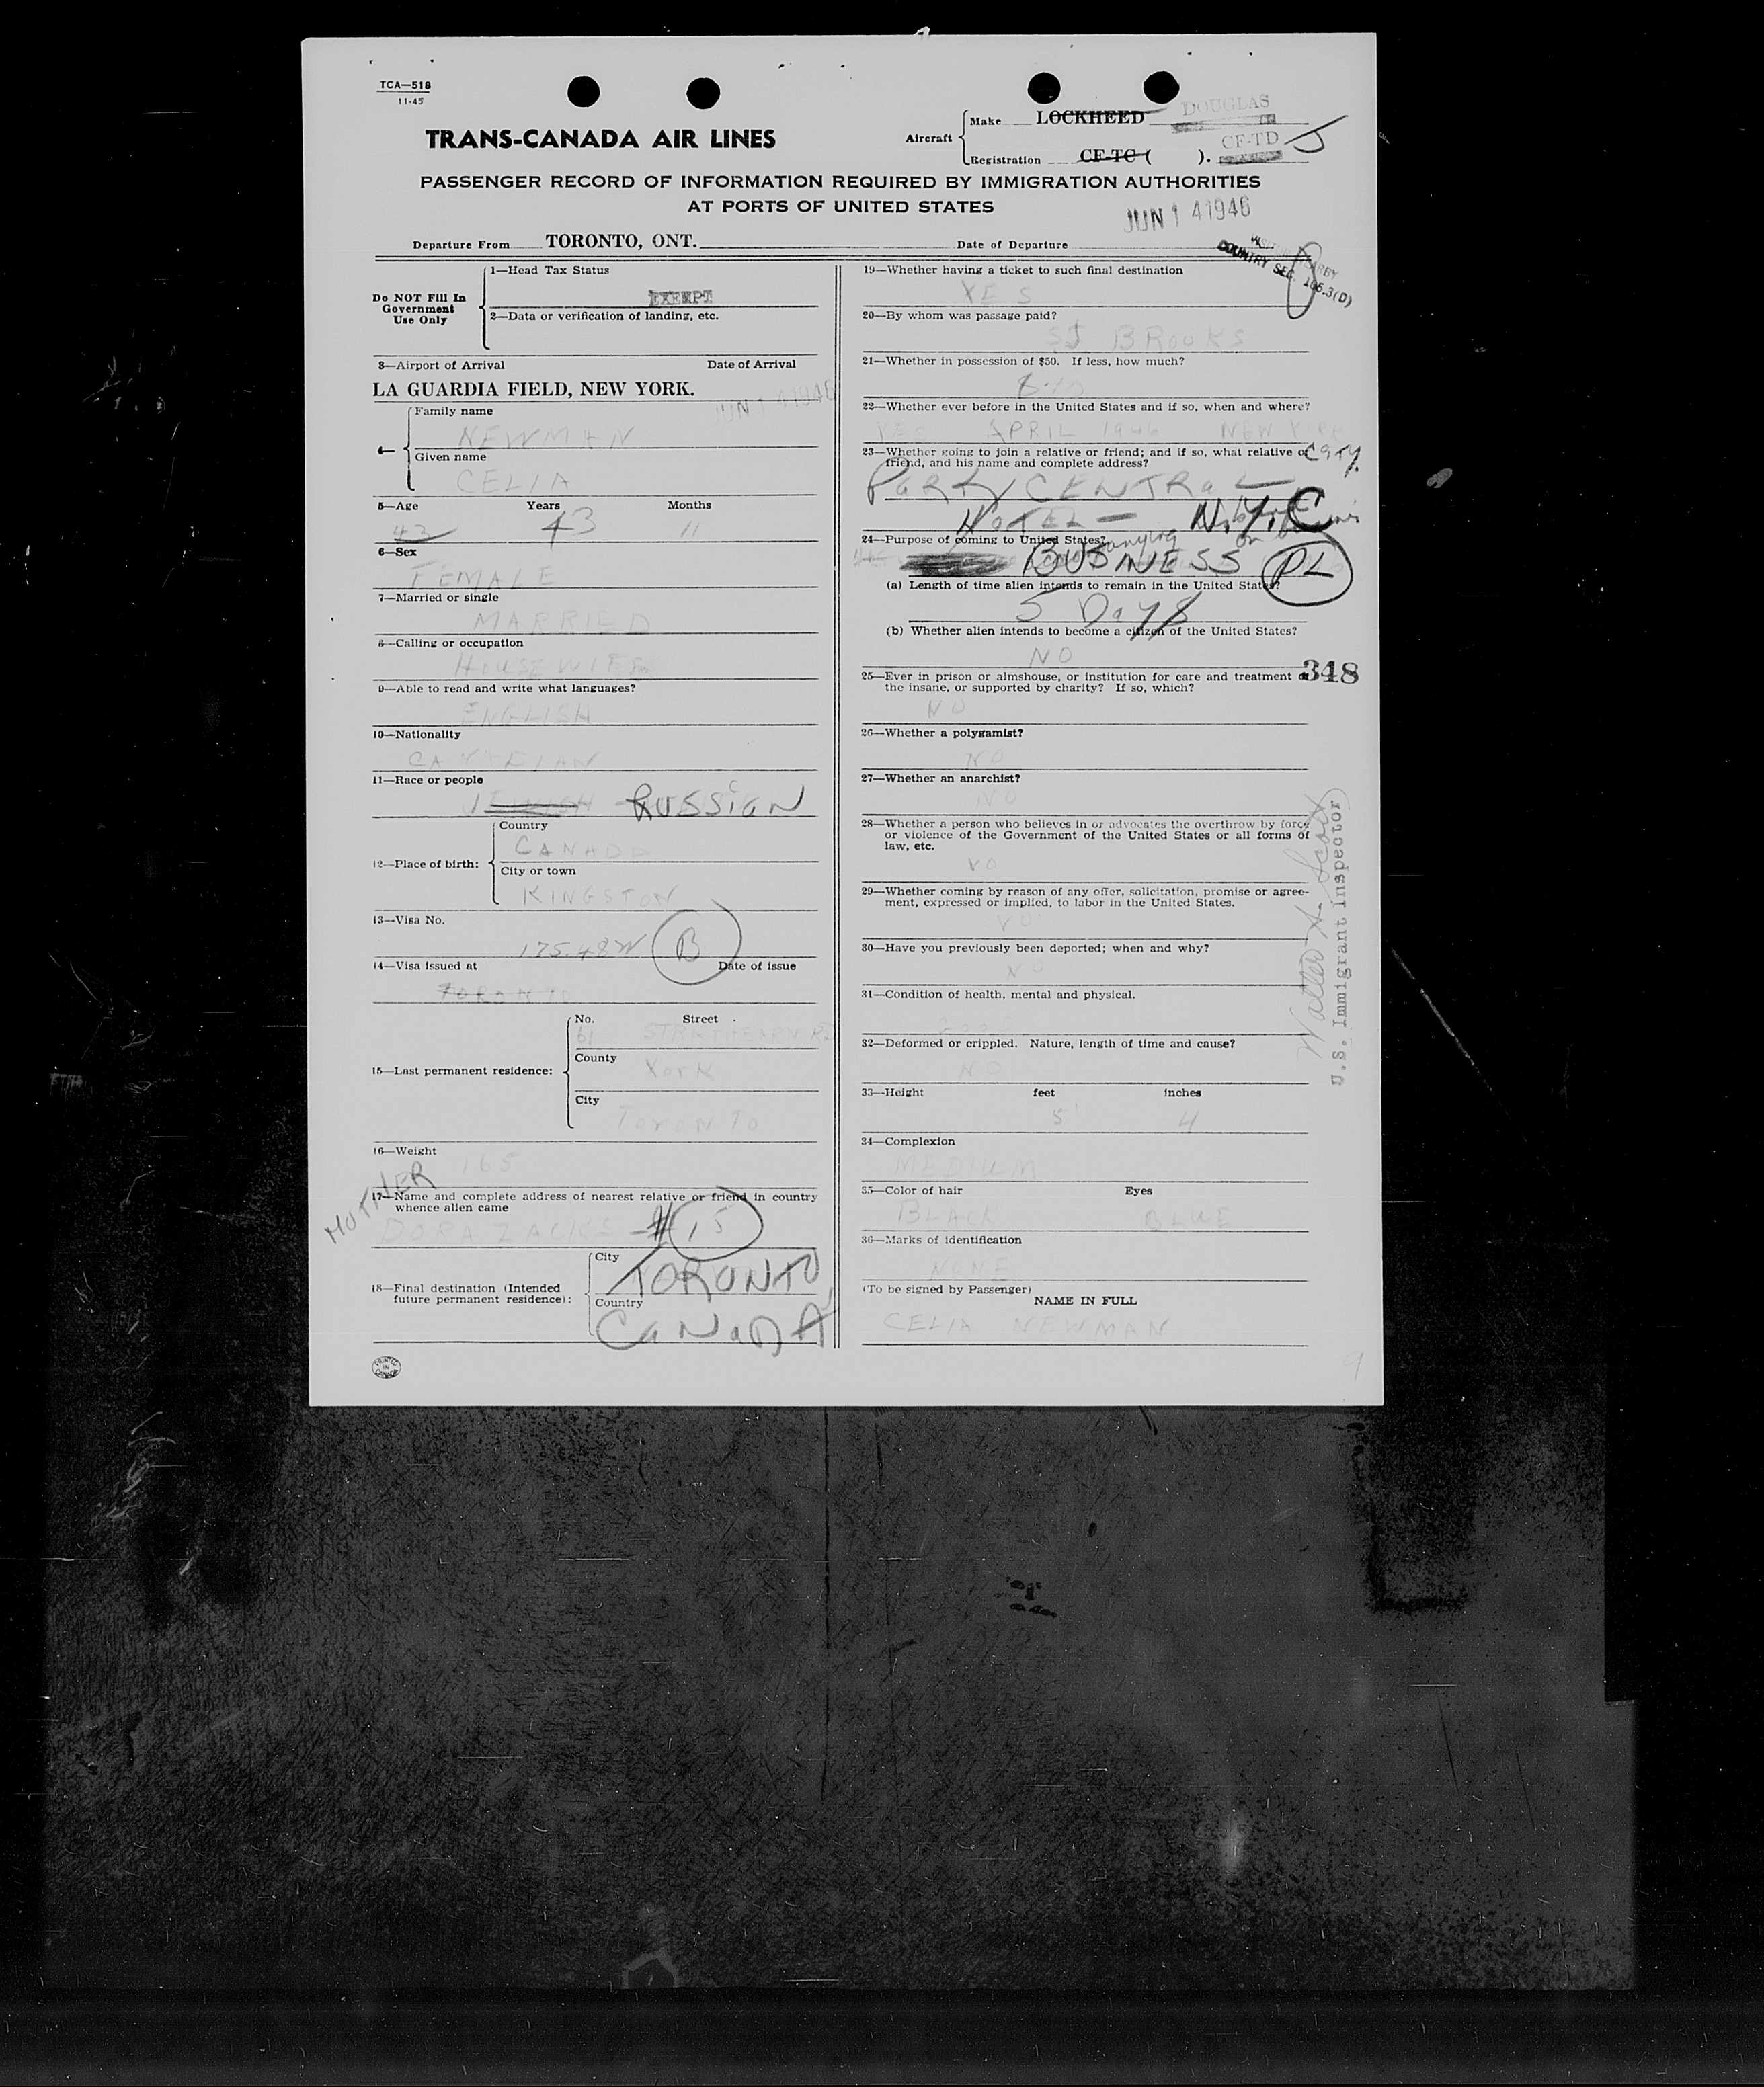 TCA—518
11-45
TRANS-CANADA AIR LINES
Aircraft
Make LOCKHEED DOUGLAS
Registration CF-TC ( ). CF-TD J
PASSENGER RECORD OF INFORMATION REQUIRED BY IMMIGRATION AUTHORITIES
AT PORTS OF UNITED STATES
JUN 1 4 1946
Departure From TORONTO, ONT. Date of Departure
COUNTRY SEC. 165.3(D)
Do NOT Fill In
Government
Use Only
1—Head Tax Status
EXEMPT
2—Data or verification of landing, etc.
3—Airport of Arrival Date of Arrival
LA GUARDIA FIELD, NEW YORK.
JUN 1 4 1946
4—
Family name
NEWMAN
Given name
CELIA
5—Age Years Months
43 43 11
6—Sex
FEMALE
7—Married or single
MARRIED
8—Calling or occupation
HOUSEWIFE
9—Able to read and write what languages?
ENGLISH
10—Nationality
CANADIAN
11—Race or people
JEWISH RUSSIAN
12—Place of birth:
Country
CANADA
City or town
KINGSTON
13—Visa No.
B
14—Visa issued at Date of issue
TORONTO
15—Last permanent residence:
No. Street
61
County
York
City
Toronto
16—Weight
165
MOTHER
17—Name and complete address of nearest relative or friend in country
whence alien came
DORA ZACKS # 15
18—Final destination (Intended
future permanent residence):
City
TORONTO
Country
CANADA
PRINTED
IN
CANADA
19—Whether having a ticket to such final destination
YES
20—By whom was passage paid?
SJ BROOKS
21—Whether in possession of $50. If less, how much?
22—Whether ever before in the United States and if so, when and where?
YES APRIL 1946 NEW YORK
CITY.
23—Whether going to join a relative or friend; and if so, what relative or
friend, and his name and complete address?
PARK CENTRAL
HOTEL — N.Y.C
24—Purpose of coming to United States?
BUSINESS PL
(a) Length of time alien intends to remain in the United States?
5 Days
(b) Whether alien intends to become a citizen of the United States?
NO
348
25—Ever in prison or almshouse, or institution for care and treatment of
the insane, or supported by charity? If so, which?
NO
26—Whether a polygamist?
NO
27—Whether an anarchist?
NO
28—Whether a person who believes in or advocates the overthrow by force
or violence of the Government of the United States or all forms of
law, etc.
NO
29—Whether coming by reason of any offer, solicitation, promise or agree-
ment, expressed or implied, to labor in the United States.
NO
30—Have you previously been deported; when and why?
NO
31—Condition of health, mental and physical.
32—Deformed or crippled. Nature, length of time and cause?
NO
33—Height feet inches
5' 4
34—Complexion
MEDIUM
35—Color of hair Eyes
BLACK BLUE
36—Marks of identification
NONE
(To be signed by Passenger)
NAME IN FULL
CELIA NEWMAN
9
Walter A. Scott
U.S. Immigrant Inspector